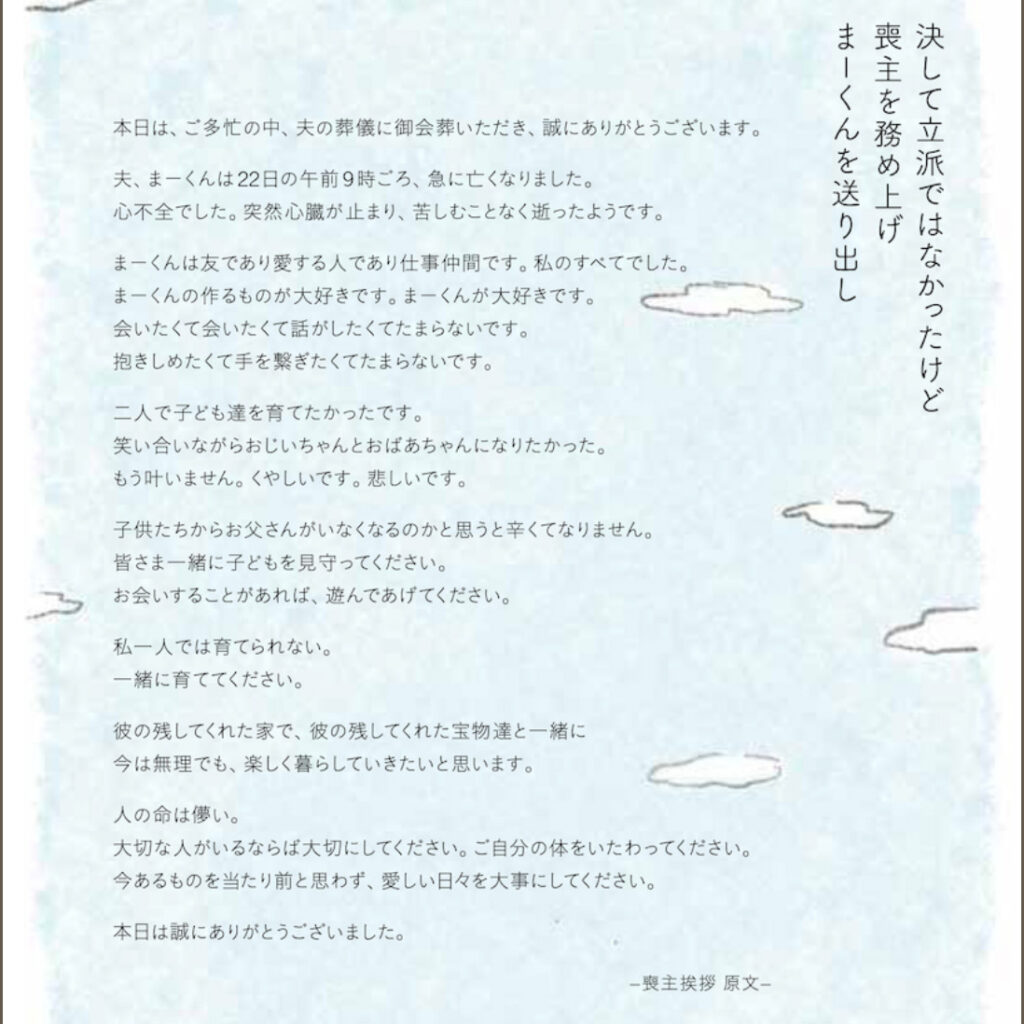 決して立派ではなかったけど
喪主を務め上げ
まーくんを送り出し
本日は、ご多忙の中、夫の葬儀に御会葬いただき、誠にありがとうございます。
夫、まーくんは22日の午前9時ごろ、急に亡くなりました。
心不全でした。突然心臓が止まり、苦しむことなく逝ったようです。
まーくんは友であり愛する人であり仕事仲間です。私のすべてでした。
まーくんの作るものが大好きです。まーくんが大好きです。
会いたくて会いたくて話がしたくてたまらないです。
抱きしめたくて手を繋ぎたくてたまらないです。
二人で子ども達を育てたかったです。
笑い合いながらおじいちゃんとおばあちゃんになりたかった。
もう叶いません。くやしいです。悲しいです。
子供たちからお父さんがいなくなるのかと思うと辛くてなりません。
皆さま一緒に子どもを見守ってください。
お会いすることがあれば、遊んであげてください。
私一人では育てられない。
一緒に育ててください。
彼の残してくれた家で、彼の残してくれた宝物達と一緒に
今は無理でも、楽しく暮らしていきたいと思います。
人の命は儚い。
大切な人がいるならば大切にしてください。ご自分の体をいたわってください。
今あるものを当たり前と思わず、愛しい日々を大事にしてください。
本日は誠にありがとうございました。
–喪主挨拶 原文–